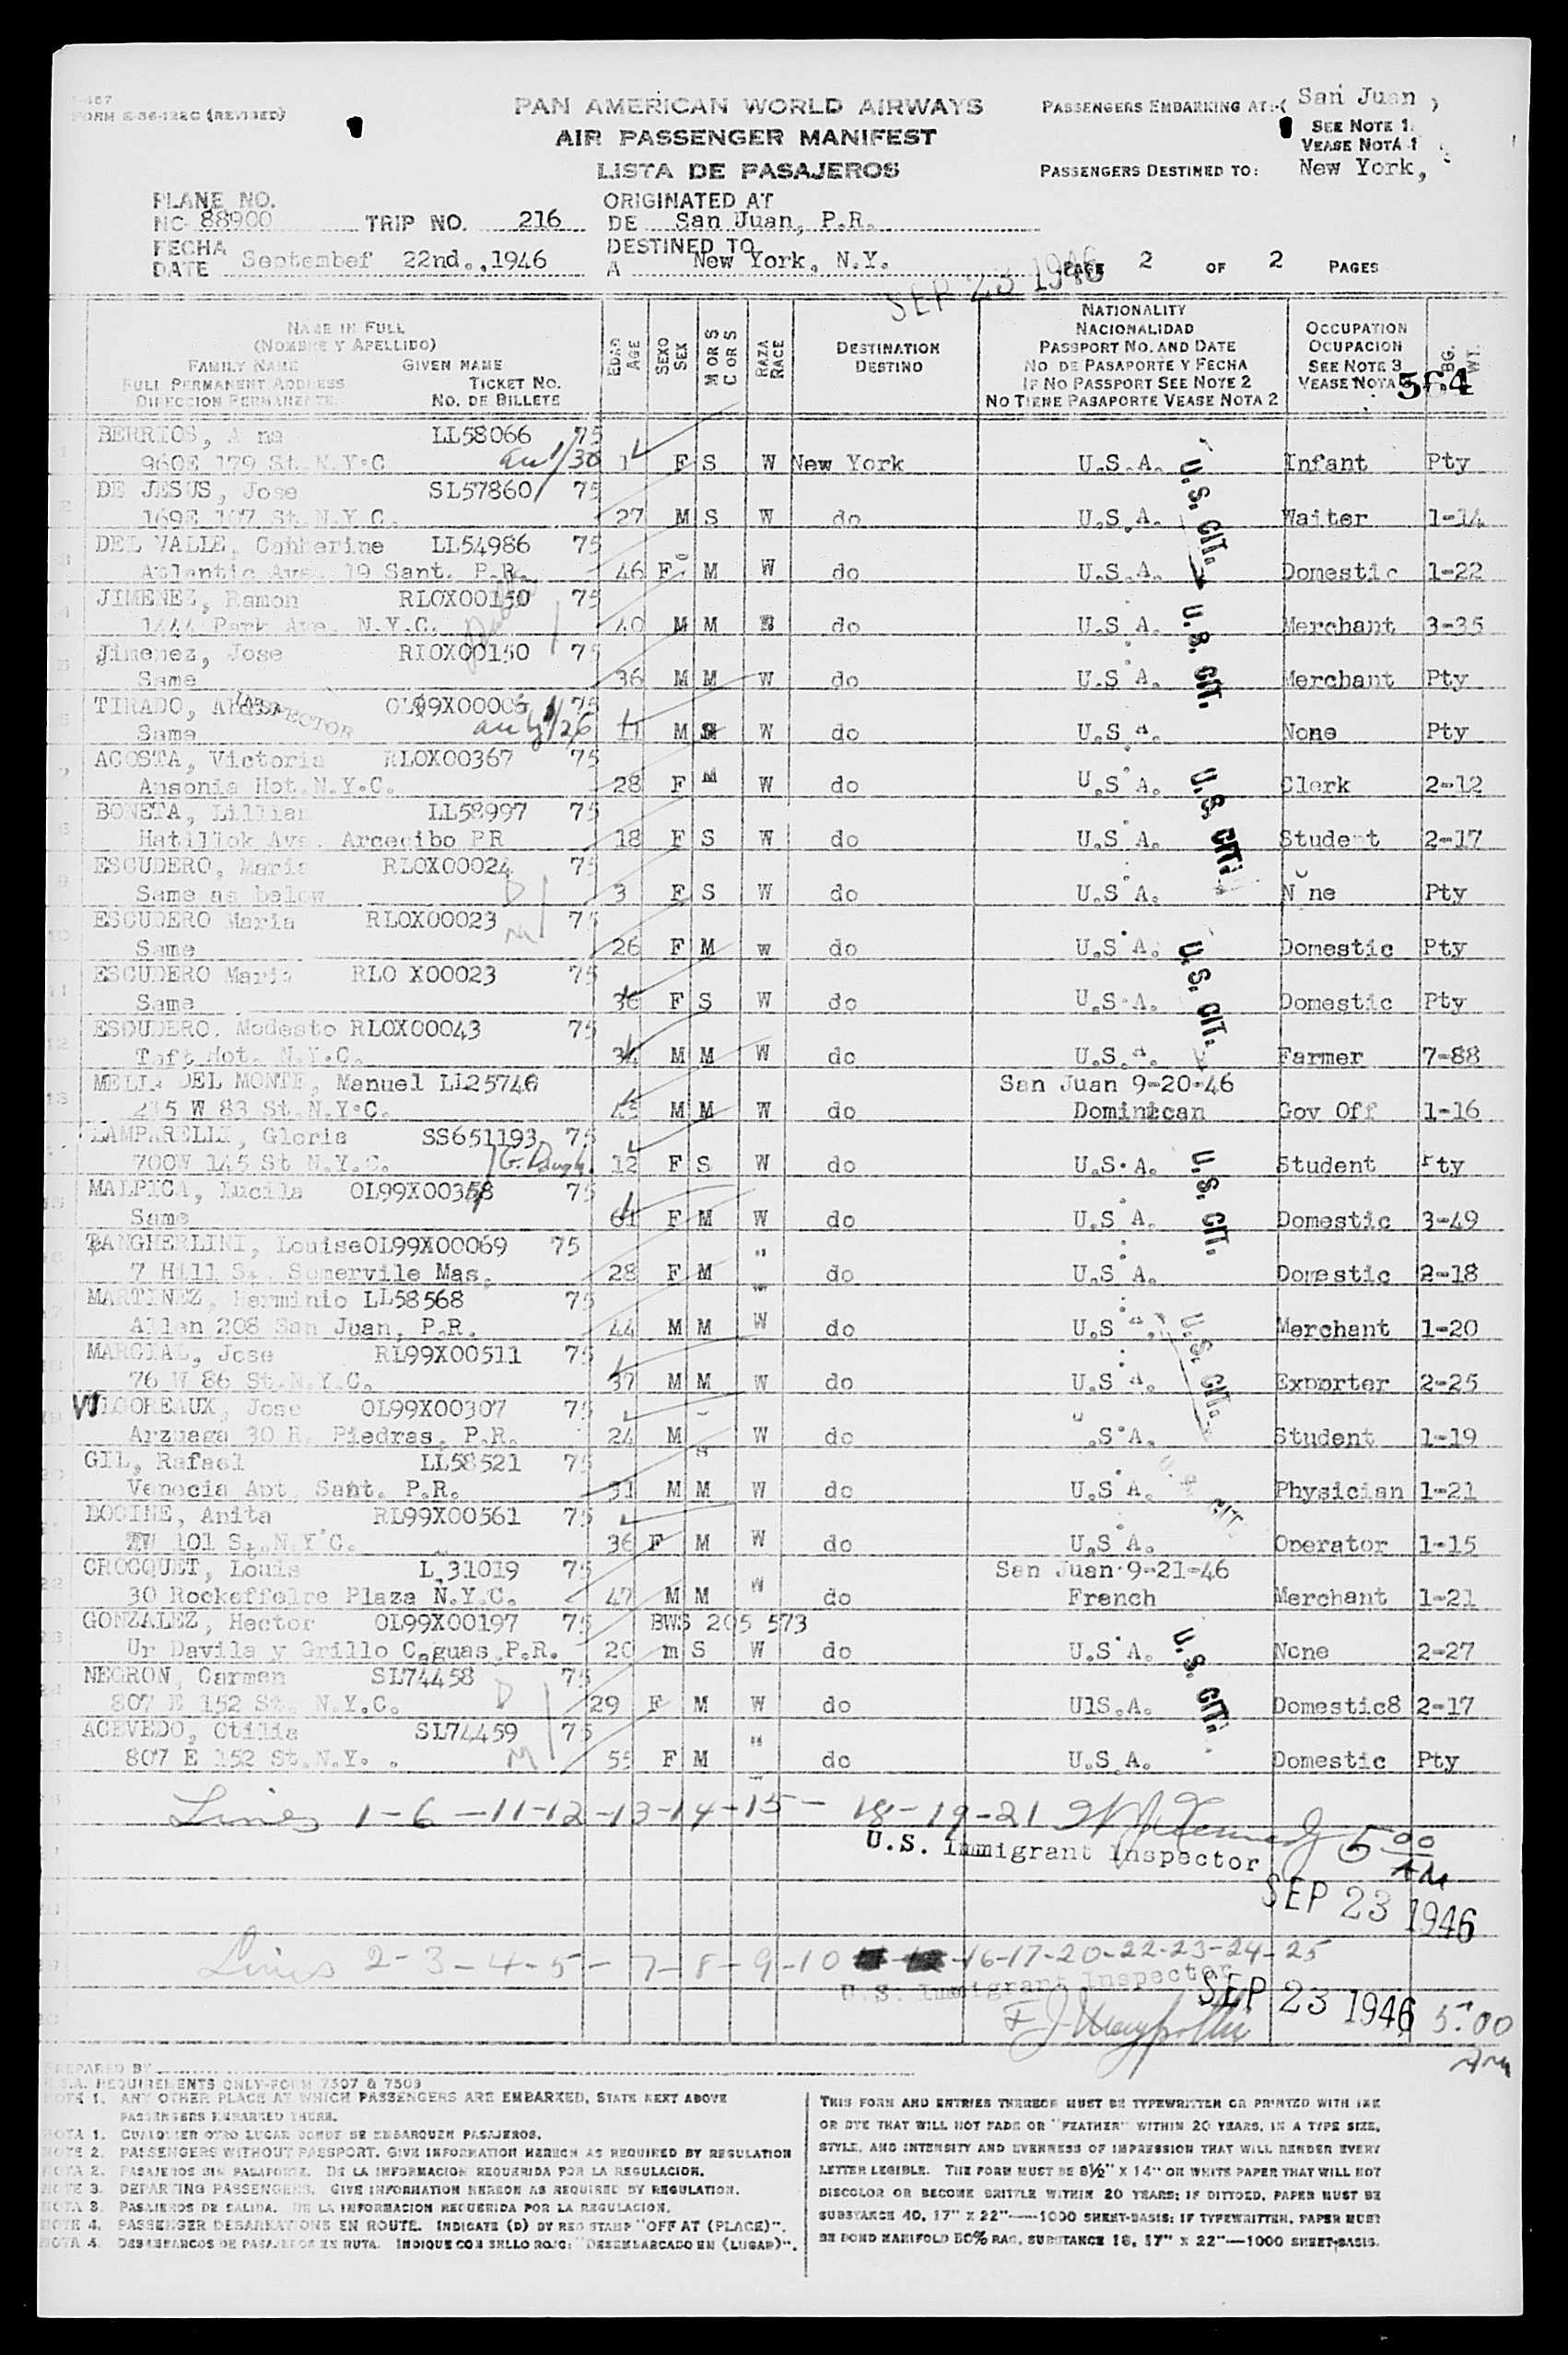 I-487
FORM E-36-122C (REVISED)
PAN AMERICAN WORLD AIRWAYS
AIR PASSENGER MANIFEST
LISTA DE PASAJEROS
PASSENGERS EMBARKING AT:-( San Juan )
SEE NOTE 1.
VEASE NOTA 1
PASSENGERS DESTINED TO: New York,
PLANE NO.
NC 88900 TRIP NO. 216
ORIGINATED AT
DE San Juan, P.R.
FECHA
DATE September 22nd.,1946
DESTINED TO
A New York, N.Y.
SEP 23 1946
PAGE 2 OF 2 PAGES
NAME IN FULL
(NOMBRE Y APELLIDO)
FAMILY NAME GIVEN NAME
FULL PERMANENT ADDRESS TICKET NO.
DIRECCION PERMANENTE NO. DE BILLETE
EDAD AGE
SEXO SEX
M OR S C OR S
RAZA RACE
DESTINATION
DESTINO
NATIONALITY
NACIONALIDAD
PASSPORT NO. AND DATE
NO DE PASAPORTE Y FECHA
IF NO PASSPORT SEE NOTE 2
NO TIENE PASAPORTE VEASE NOTA 2
OCCUPATION
OCUPACION
SEE NOTE 3
VEASE NOTA
BG. WT.
564
BERRIOS, A na LL58066 75
960E 179 St.N.Y.C 1 F S W New York U.S.A. Infant Pty
DE JESUS, Jose SL57860 75
169E 107 St.N.Y.C. 27 M S W do U.S.A. Waiter 1-14
DEL VALLE, Cahherine LL54986 75
Atlantic Ave. 19 Sant. P.R. 46 F M W do U.S.A. Domestic 1-22
JIMENEZ, Ramon RLOX00150 75
1444 Park Ave. N.Y.C. 40 M M do U.S A. Merchant 3-35
Jimenez, Jose RIOX00150 75
Same 36 M M W do U.S A. Merchant Pty
TIRADO, OL99X00005 75
INSPECTOR
Same 11 M W do U.S A. None Pty
ACOSTA, Victoria RLOX00367 75
Ansonia Hot.N.Y.C. 28 F M W do U.S A. Clerk 2-12
BONETA, Lillian LL58997 75
Hatillok Ave. Arcecibo PR 18 F S W do U.S A. Student 2-17
ESCUDERO, Maria RLOX00024 75
Same as below 3 F S W do U.S A. None Pty
ESCUDERO Maria RLOX00023 75
Same 26 F M w do U.S A. Domestic Pty
ESCUDERO Maria RLO X00023 75
Same 36 F S W do U.S.A. Domestic Pty
ESCUDERO. Modesto RLOX00043 75
Taft Hot. N.Y.C. 34 M M W do U.S.A. Farmer 7-88
MELLA DEL MONTE, Manuel LL25746 San Juan 9-20-46
215 W 83 St.N.Y.C. 45 M M W do Dominican Gov Off 1-16
LAMPARELLI, Gloria SS651193 75
700W 145 St N.Y.C. G. Daugh. 12 F S W do U.S.A. Student Pty
MALPICA, Lucila OL99X00358 75
Same 61 F M W do U.S A. Domestic 3-49
PANGHERLINI, LouiseOL99X00069 75
7 Hill St. Somervile Mas. 28 F M do U.S A. Domestic 2-18
MARTINEZ, Herminio LL58568 75
Allen 208 San Juan, P.R. 44 M M W do U.S A. Merchant 1-20
MARCIAL, Jose RL99X00511 75
76 W 86 St.N.Y.C. 37 M M W do U.S A. Exporter 2-25
VILOOREAUX, Jose OL99X00307 75
Arzuaga 30 R. Piedras, P.R. 24 M S W do U.S A. Student 1-19
GIL, Rafael LL58521 75
Venecia Apt. Sant. P.R. 31 M M W do U.S A. Physician 1-21
DOCINE, Anita RL99X00561 75
101 St.N.Y C. 36 F M W do U.S A. Operator 1-15
CROCQUET, Louis L 31019 75 San Juan 9-21-46
30 Rockeffolre Plaza N.Y.C. 47 M M W do French Merchant 1-21
GONZALEZ, Hector OL99X00197 75 BWS 205 573
Ur Davila y Grillo Caguas P.R. 20 m S W do U.S A. None 2-27
NEGRON, Carmen SL74458 75
807 E 152 St. N.Y.C. 29 F M W do U1S.A. Domestic8 2-17
ACEVEDO, Otilia SL74459 75
807 E 152 St.N.Y. . 55 F M do U.S A. Domestic Pty
U.S. CIT.
U.S. CIT.
U.S. CIT.
U.S. CIT.
U.S. CIT.
U.S. CIT.
U.S. CIT.
U.S. CIT.
Lines 1-6-11-12-13-14-15-18-19-21
U.S. Immigrant Inspector 5 00 AM
SEP 23 1946
Lines 2-3-4-5-7-8-9-10 -16-17-20-22-23-24-25
U.S. Immigrant Inspector
SEP 23 1946 5:00 AM
PREPARED BY
U.S.A. REQUIREMENTS ONLY-FORM 7507 & 7509
NOTE 1. ANY OTHER PLACE AT WHICH PASSENGERS ARE EMBARKED, STATE NEXT ABOVE
PASSENGERS EMBARKED THERE.
NOTA 1. CUALQUIER OTRO LUGAR DONDE SE EMBARQUEN PASAJEROS.
NOTE 2. PASSENGERS WITHOUT PASSPORT. GIVE INFORMATION HEREON AS REQUIRED BY REGULATION
NOTA 2. PASAJEROS SIN PASAPORTE. DE LA INFORMACION REQUERIDA POR LA REGULACION.
NOTE 3. DEPARTING PASSENGERS. GIVE INFORMATION HEREON AS REQUIRED BY REGULATION.
NOTA 3. PASAJEROS DE SALIDA. DE LA INFORMACION REQUERIDA POR LA REGULACION.
NOTE 4. PASSENGER DEBARKATIONS EN ROUTE. INDICATE (D) BY RED STAMP "OFF AT (PLACE)".
NOTA 4. DESEMBARCOS DE PASAJEROS EN RUTA. INDIQUE CON SELLO ROJO: "DESEMBARCADO EN (LUGAR)".
THIS FORM AND ENTRIES THEREON MUST BE TYPEWRITTEN OR PRINTED WITH INK
OR DYE THAT WILL NOT FADE OR "FEATHER" WITHIN 20 YEARS, IN A TYPE SIZE,
STYLE, AND INTENSITY AND EVENNESS OF IMPRESSION THAT WILL RENDER EVERY
LETTER LEGIBLE. THE FORM MUST BE 8½" X 14" ON WHITE PAPER THAT WILL NOT
DISCOLOR OR BECOME BRITTLE WITHIN 20 YEARS; IF DITTOED, PAPER MUST BE
SUBSTANCE 40, 17" X 22"—1000 SHEET-BASIS; IF TYPEWRITTEN, PAPER MUST
BE BOND MANIFOLD 50% RAG, SUBSTANCE 18, 17" X 22"—1000 SHEET-BASIS.